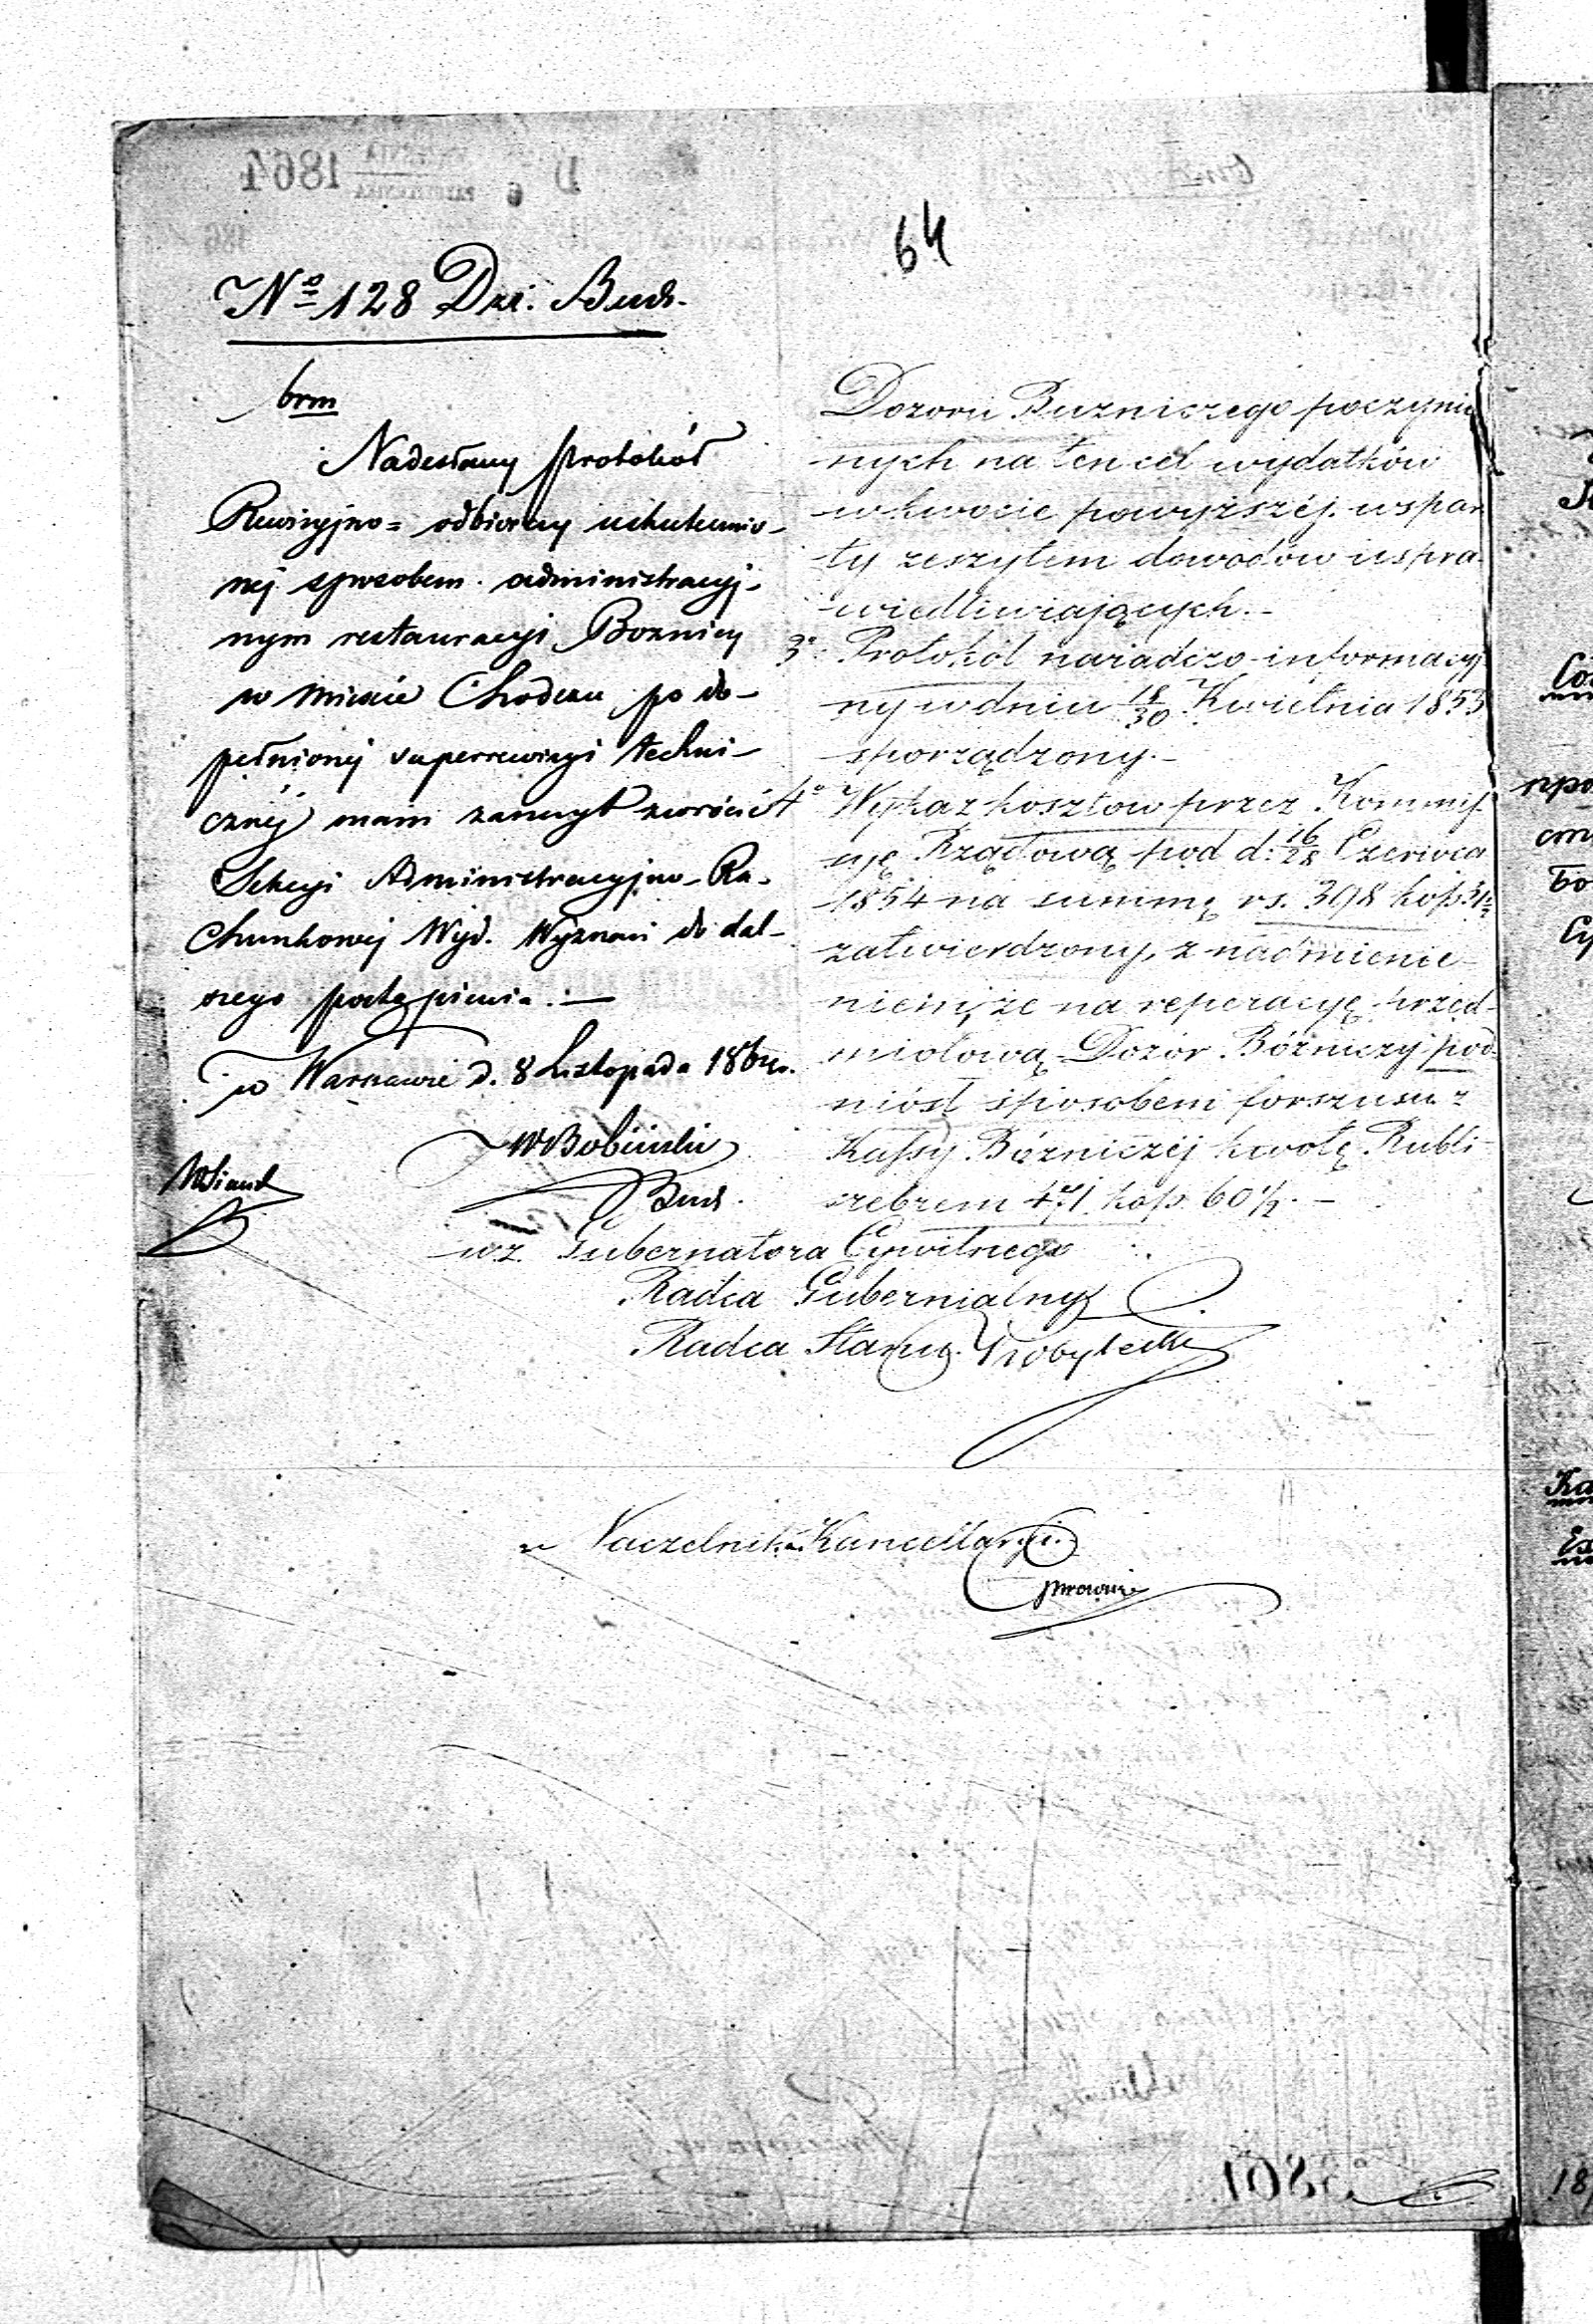 64
No 128 Dzi. Bud.
brm
Nadesłany protokół
Rewizyjno = odbiorczy uskutecznio-
nej sposobem administracyj-
nym restauracyi Boznicy
w mieście Chodczu po do-
pełnionej superrewizyi techni-
cznéj mam zaszczyt zwrócić
Sekcyi Administracyjno-Ra-
chunkowej Wyd. Wyznań do dal-
szego postąpienia.—
w Warszawie d. 8 Listopada 186
WBobiński
Bud.
Dozoru Buzniczego poczynio
nych na ten cel wydatków
w kwocie powyższéj wspar
ty zeszytem dowodów uspra-
wiedliwiających.-
3o Protokół naradczo-informacyj
ny w dniu 18/30 Kwietnia 1853
sporządzony.-
4o Wykaz kosztów przez Kommis-
syę Rządową pod d: 16/28 Czerwca
1854 na summę rs. 398 kop 31½
zatwierdzony, z nadmienie-
niem, że na reperacyę przed-
miotową Dozór Bóżniczy pod-
niósł sposobem forszusu z
Kassy Bózniczéj kwotę Rubli
srebrem 471 kop. 60½.-
wz. Gubernatora Cywilnego
Radca Gubernialny
Radca Stanu
Naczelnik Kancellaryi